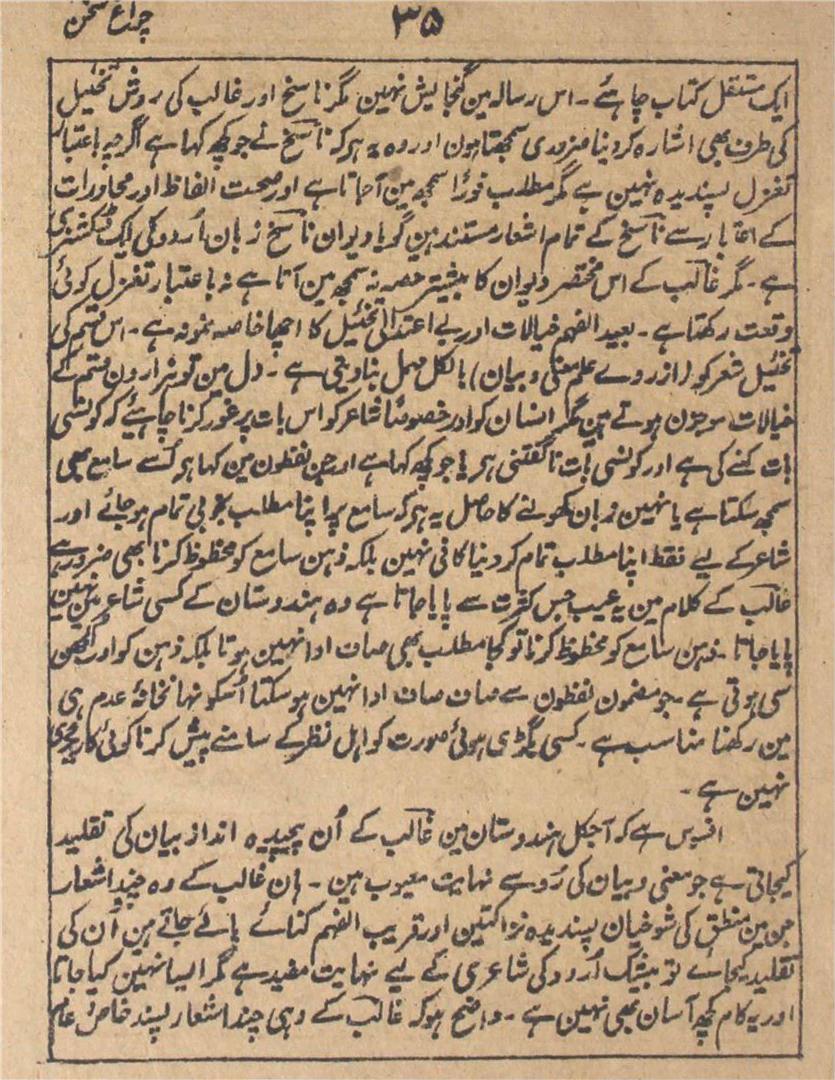 چراغ سخن
۳۵
ایک مستقل کتاب چاہئے۔ اس رسالہ مین گنجایش نہین مگر ناسخ اور غالب کی روش تخئیل
کی طرف بھی اشارہ کر دینا ضروری سمجھتا ہون اور وہ یہ ہر کہ ناسخ نے جو کچھ کہا ہے اگرچہ باعتبار
تغزل پسندیدہ نہین ہے مگر مطلب فوراً سمجھ مین آجاتا ہے اور صحت الفاظ اور محاورات
کے اعتبار سے ناسخ کے تمام اشعار مستند ہین گویا دیوان ناسخ زبان اُردو کی ایک ڈکشنری
ہے۔ مگر غالب کے اس مختصر دیوان کا بیشتر حصہ نہ سمجھ مین آتا ہے نہ باعتبار تغزل کوئی
وقعت رکھتا ہے۔ بعید الفہم خیالات اور بے اعتدالیٔ تخئیل کا اچھا خاصہ نمونہ ہے۔ اس قسم کی
تخئیل شعر کو (از روے علم معنی و بیان) بالکل مہمل بنا دیتی ہے۔ دل مین تو ہزارون قسم کے
خیالات موجزن ہوتے ہین مگر انسان کو اور خصوصاً شاعر کو اس بات پر غور کرنا چاہئیے کہ کونسی
بات کہنے کی ہے اور کونسی بات ناگفتنی ہر یا جو کچھ کہا ہے اور جن لفظون مین کہا ہر اُسے سامع بھی
سمجھ سکتا ہے یا نہین زبان کھولنے کا حاصل یہ ہر کہ سامع پر اپنا مطلب بخوبی تمام ہو جائے اور
شاعر کے لیے فقط اپنا مطلب تمام کر دینا کافی نہین بلکہ ذہن سامع کو محظوظ کرنا بھی ضرور ہے
غالب کے کلام مین یہ عیب جس کثرت سے پایا جاتا ہے وہ ہندوستان کے کسی شاعر مین نہین
پایا جاتا۔ ذہن سامع کو محظوظ کرنا تو کجا مطلب بھی صاف ادا نہین ہوتا بلکہ ذہن کو اور اُلجھن
سی ہوتی ہے۔ جو مضمون لفظون سے صاف صاف ادا نہین ہو سکتا اُسکو نہانخانۂ عدم ہی
مین رکھنا مناسب ہے۔ کسی بگڑی ہوئی صورت کو اہل نظر کے سامنے پیش کرنا کوئی کاریگری
نہین ہے۔
افسوس ہے کہ آجکل ہندوستان مین غالب کے اُن پیچیدہ انداز بیان کی تقلید
کیجاتی ہے جو معنی و بیان کی رُو سے نہایت معیوب ہین۔ ہان غالب کے وہ چند اشعار
جن مین منطق کی شوخیان پسندیدہ نزاکتین اور قریب الفہم کنائے پائے جاتے ہین اُن کی
تقلید کیجائے تو بیشک اُردو کی شاعری کے لیے نہایت مفید ہے مگر ایسا نہین کیا جاتا
اور یہ کام کچھ آسان بھی نہین ہے۔ واضح ہو کہ غالب کے وہی چند اشعار پسند خاص عام